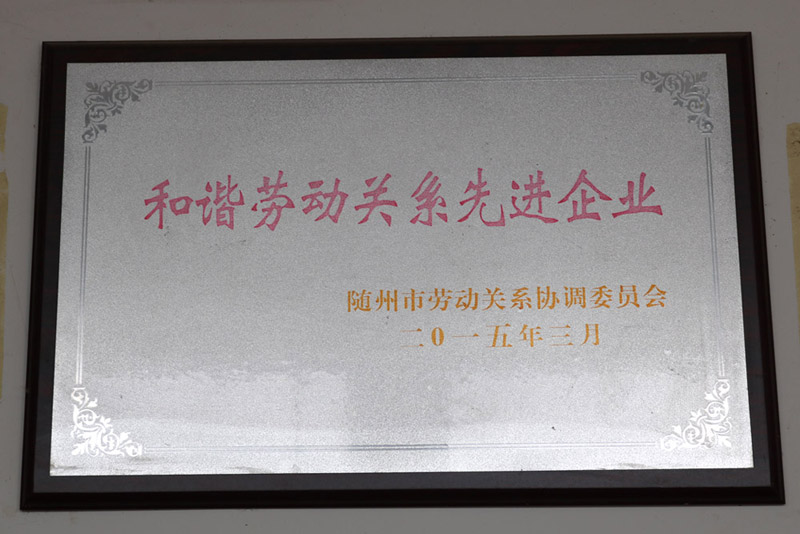 和谐劳动关系先进企业
随州市劳动关系协调委员会
二0一五年三月